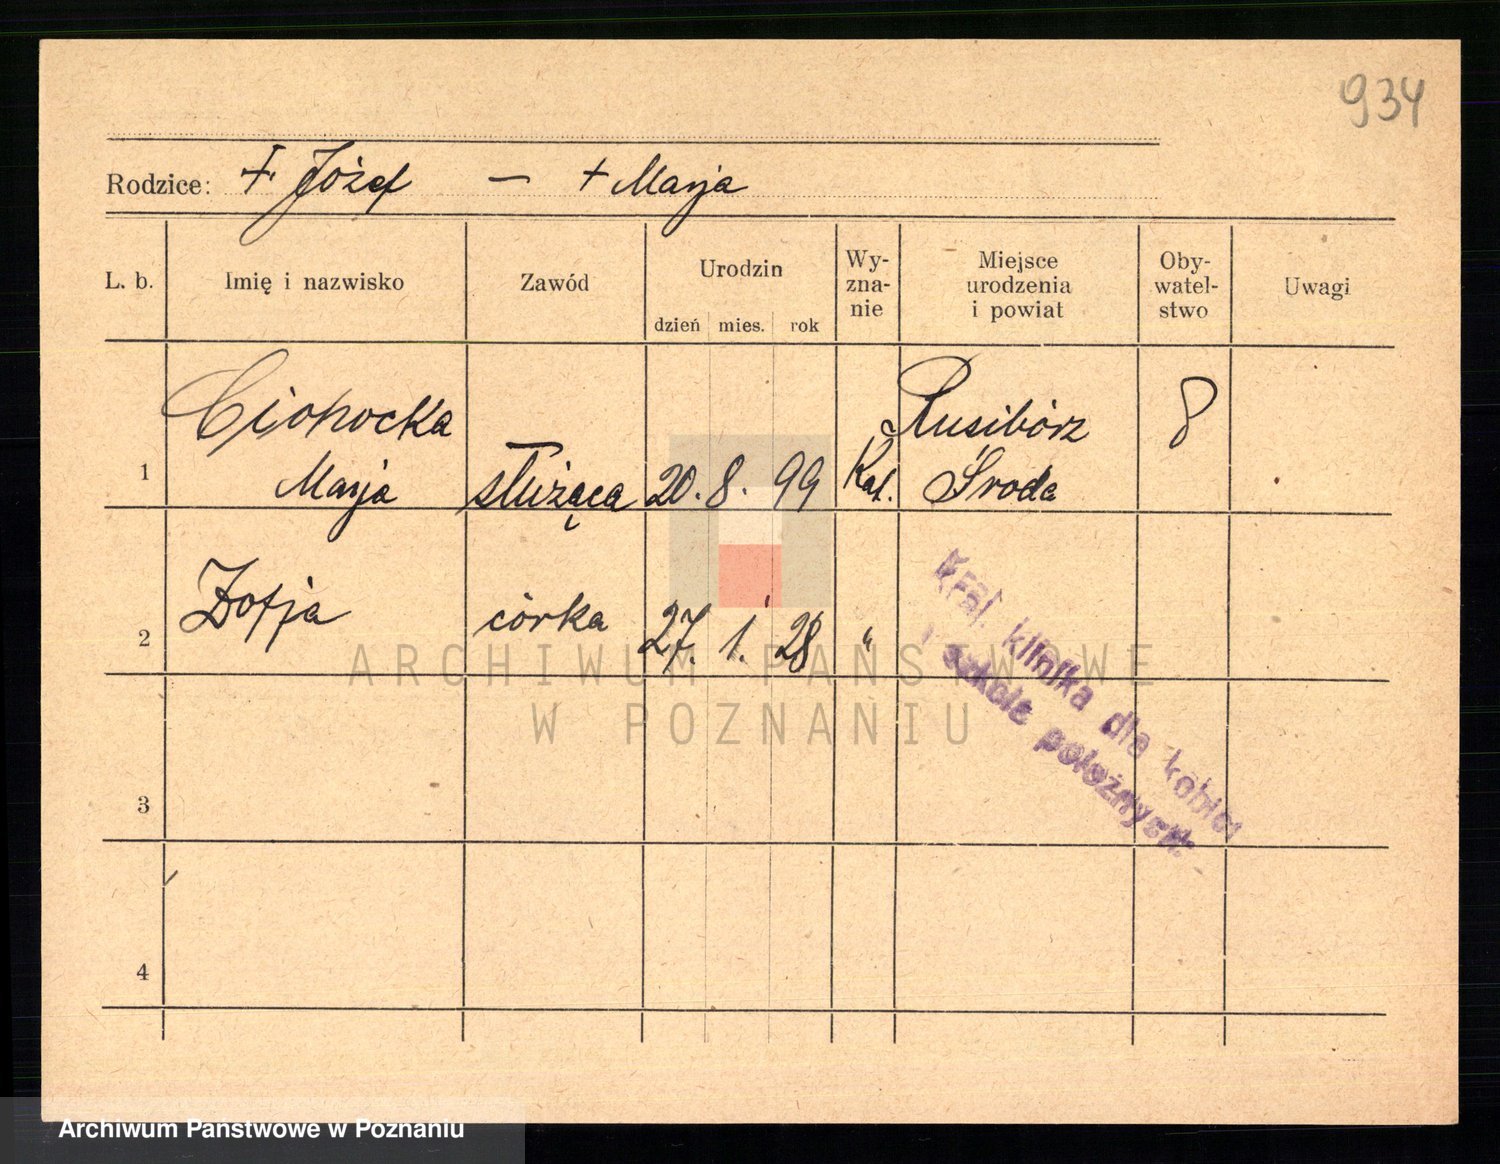 934
Rodzice: + Józef — + Marja
L. b.
Imię i nazwisko
Zawód
Urodzin
dzień mies. rok
Wy-
zna-
nie
Miejsce
urodzenia
i powiat
Oby-
watel-
stwo
Uwagi
Ciohocka Rusibórz
1 Marja służąca 20. 8. 99 Kat. Środa
2 Zofja córka 27. 1. 28 "
Kraj. klinika dla kobiet
i szkole położnych.
3
4
ARCHIWUM PAŃSTWOWE
W POZNANIU
Archiwum Państwowe w Poznaniu